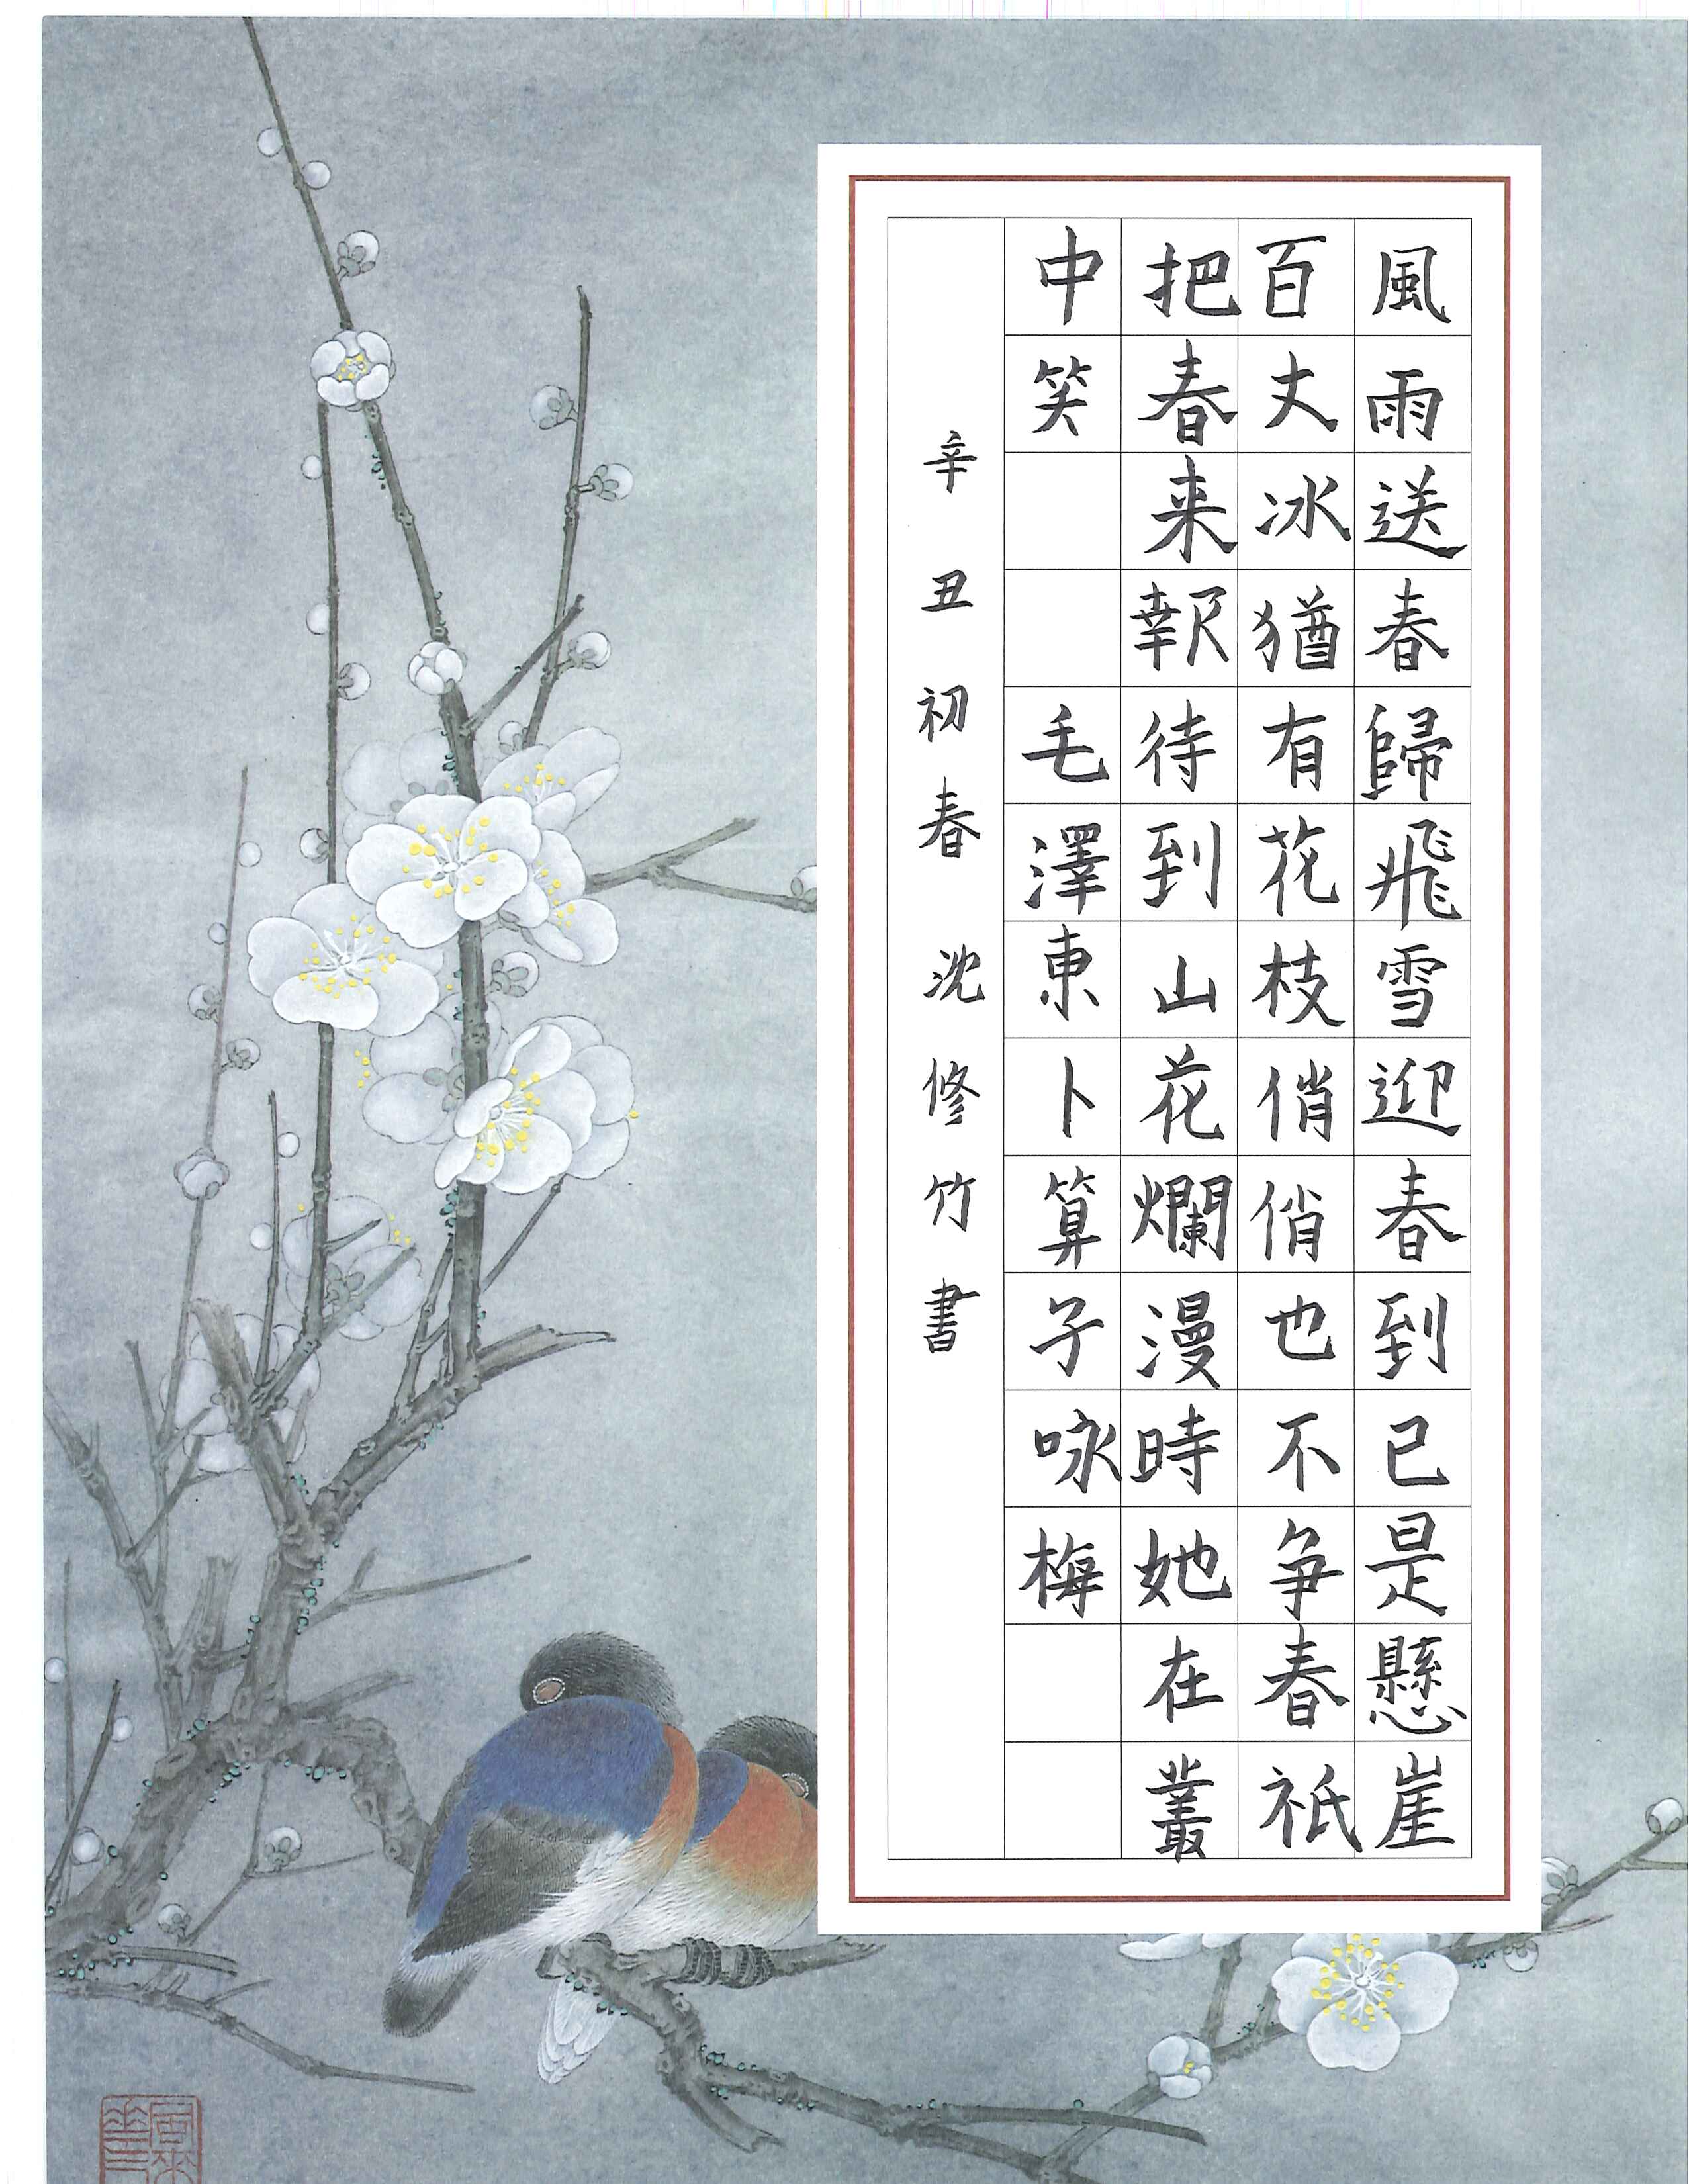 風雨送春歸飛雪迎春到已是懸崖
百丈冰猶有花枝俏俏也不争春祇
把春来報待到山花爛漫時她在叢
中笑 毛澤東卜算子咏梅
辛丑初春 沈修竹書